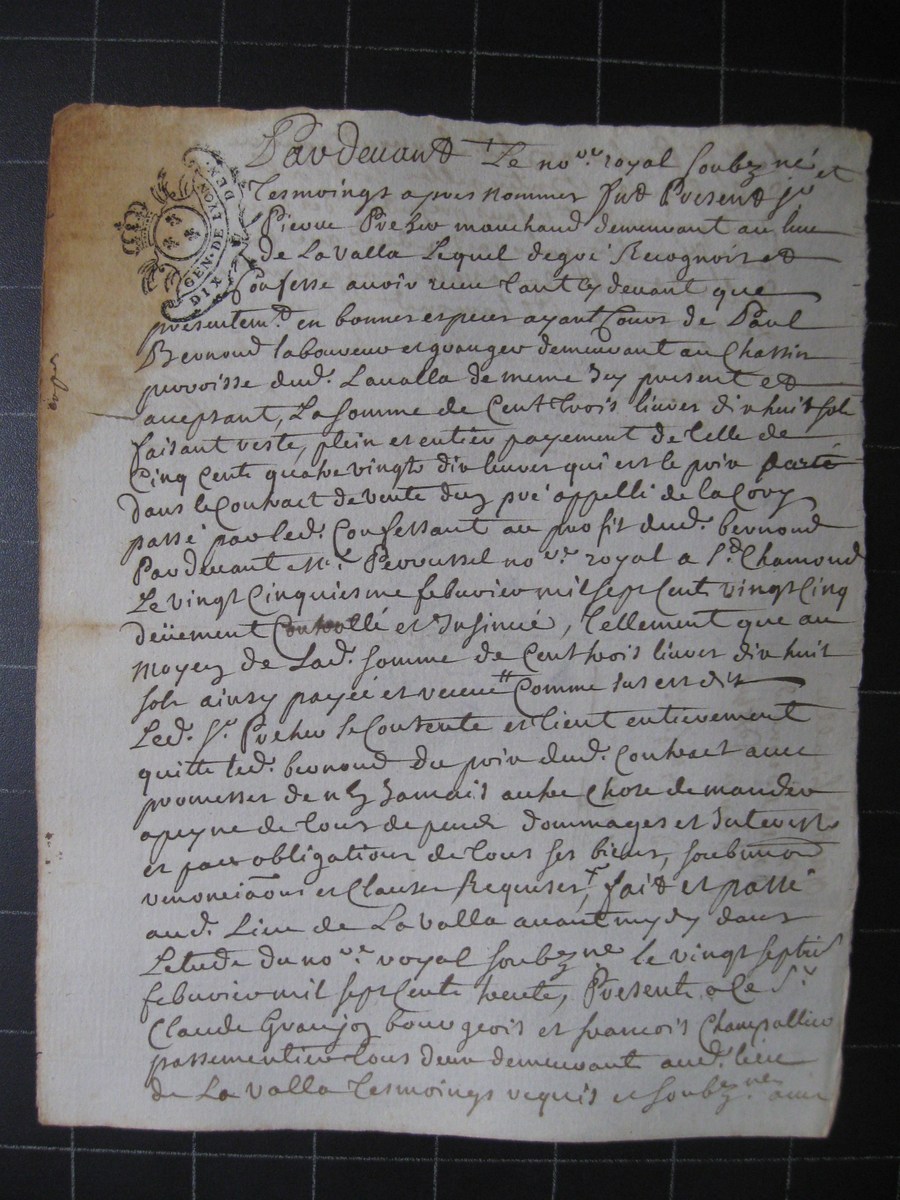 GEN. DE LYON
DIX DEN.
Pardevant Le no.re royal soubzne et
tesmoings apres nommes fut Present sr
Pierre Preher marchand demeurant au lieu
de Lavalla Lequel degré Recognoist et
Confesse avoir receu tant cy devant que
presentem.t en bonnes especes ayant Cours de Paul
Bernond laboureur et granger demeurant au Chassin
parroisse dud. Lavalla de meme Icy present et
acceptant, La somme de Cent trois livres dix huit sols
faisant reste, plein et entier payement de Celle de
Cinq Cents quatre vingts dix livres qui est le prix porté
dans le Contract de vente du pré appellé de la Cory
passé par led. Confessant au profit dud. bernond
Pardevant M.e Peroussel no.re royal a S.t Chamond
Le vingt Cinquiesme febvrier mil sept Cents vingt Cinq
deüement Controllé et Insinué, tellement que au
moyen de Lad. somme de Cent trois livres dix huit
sols ainsy payée et receue Comme sus est dit
Led. s.r Preher se Contente et tient entierement
quitte led. bernond du prix dud. Contract avec
promesses de n'en Jamais autre Chose demander
a peyne de tous depends dommages et Interests
et par obligations de tous ses biens, soubmi.ons
renonciaons et Clauses Requises, fait et passé
aud. Lieu de Lavalla avant mydy dans
Letude du no.re royal soubzne le vingt sept
febvrier mil sept Cents trente, Presents a Ce S.r
Claude Granjon bourgeois et francois Champallier
passementier tous deux demeurant aud. lieu
de Lavalla tesmoings requis et soubz.nes avec